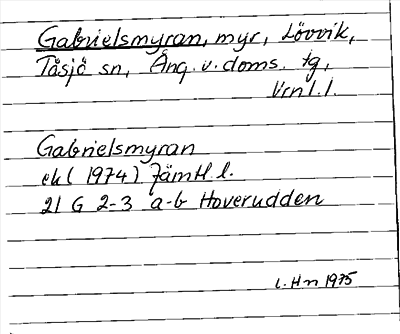 Gabrielsmyran, myr, Lövvik,
Tåsjö sn, Ång. v. doms. tg,
Vrnl. l.
Gabrielsmyran
ek (1974) Jämtl. l.
21 G 2-3 a-b Hoverudden
L. Hn 1975